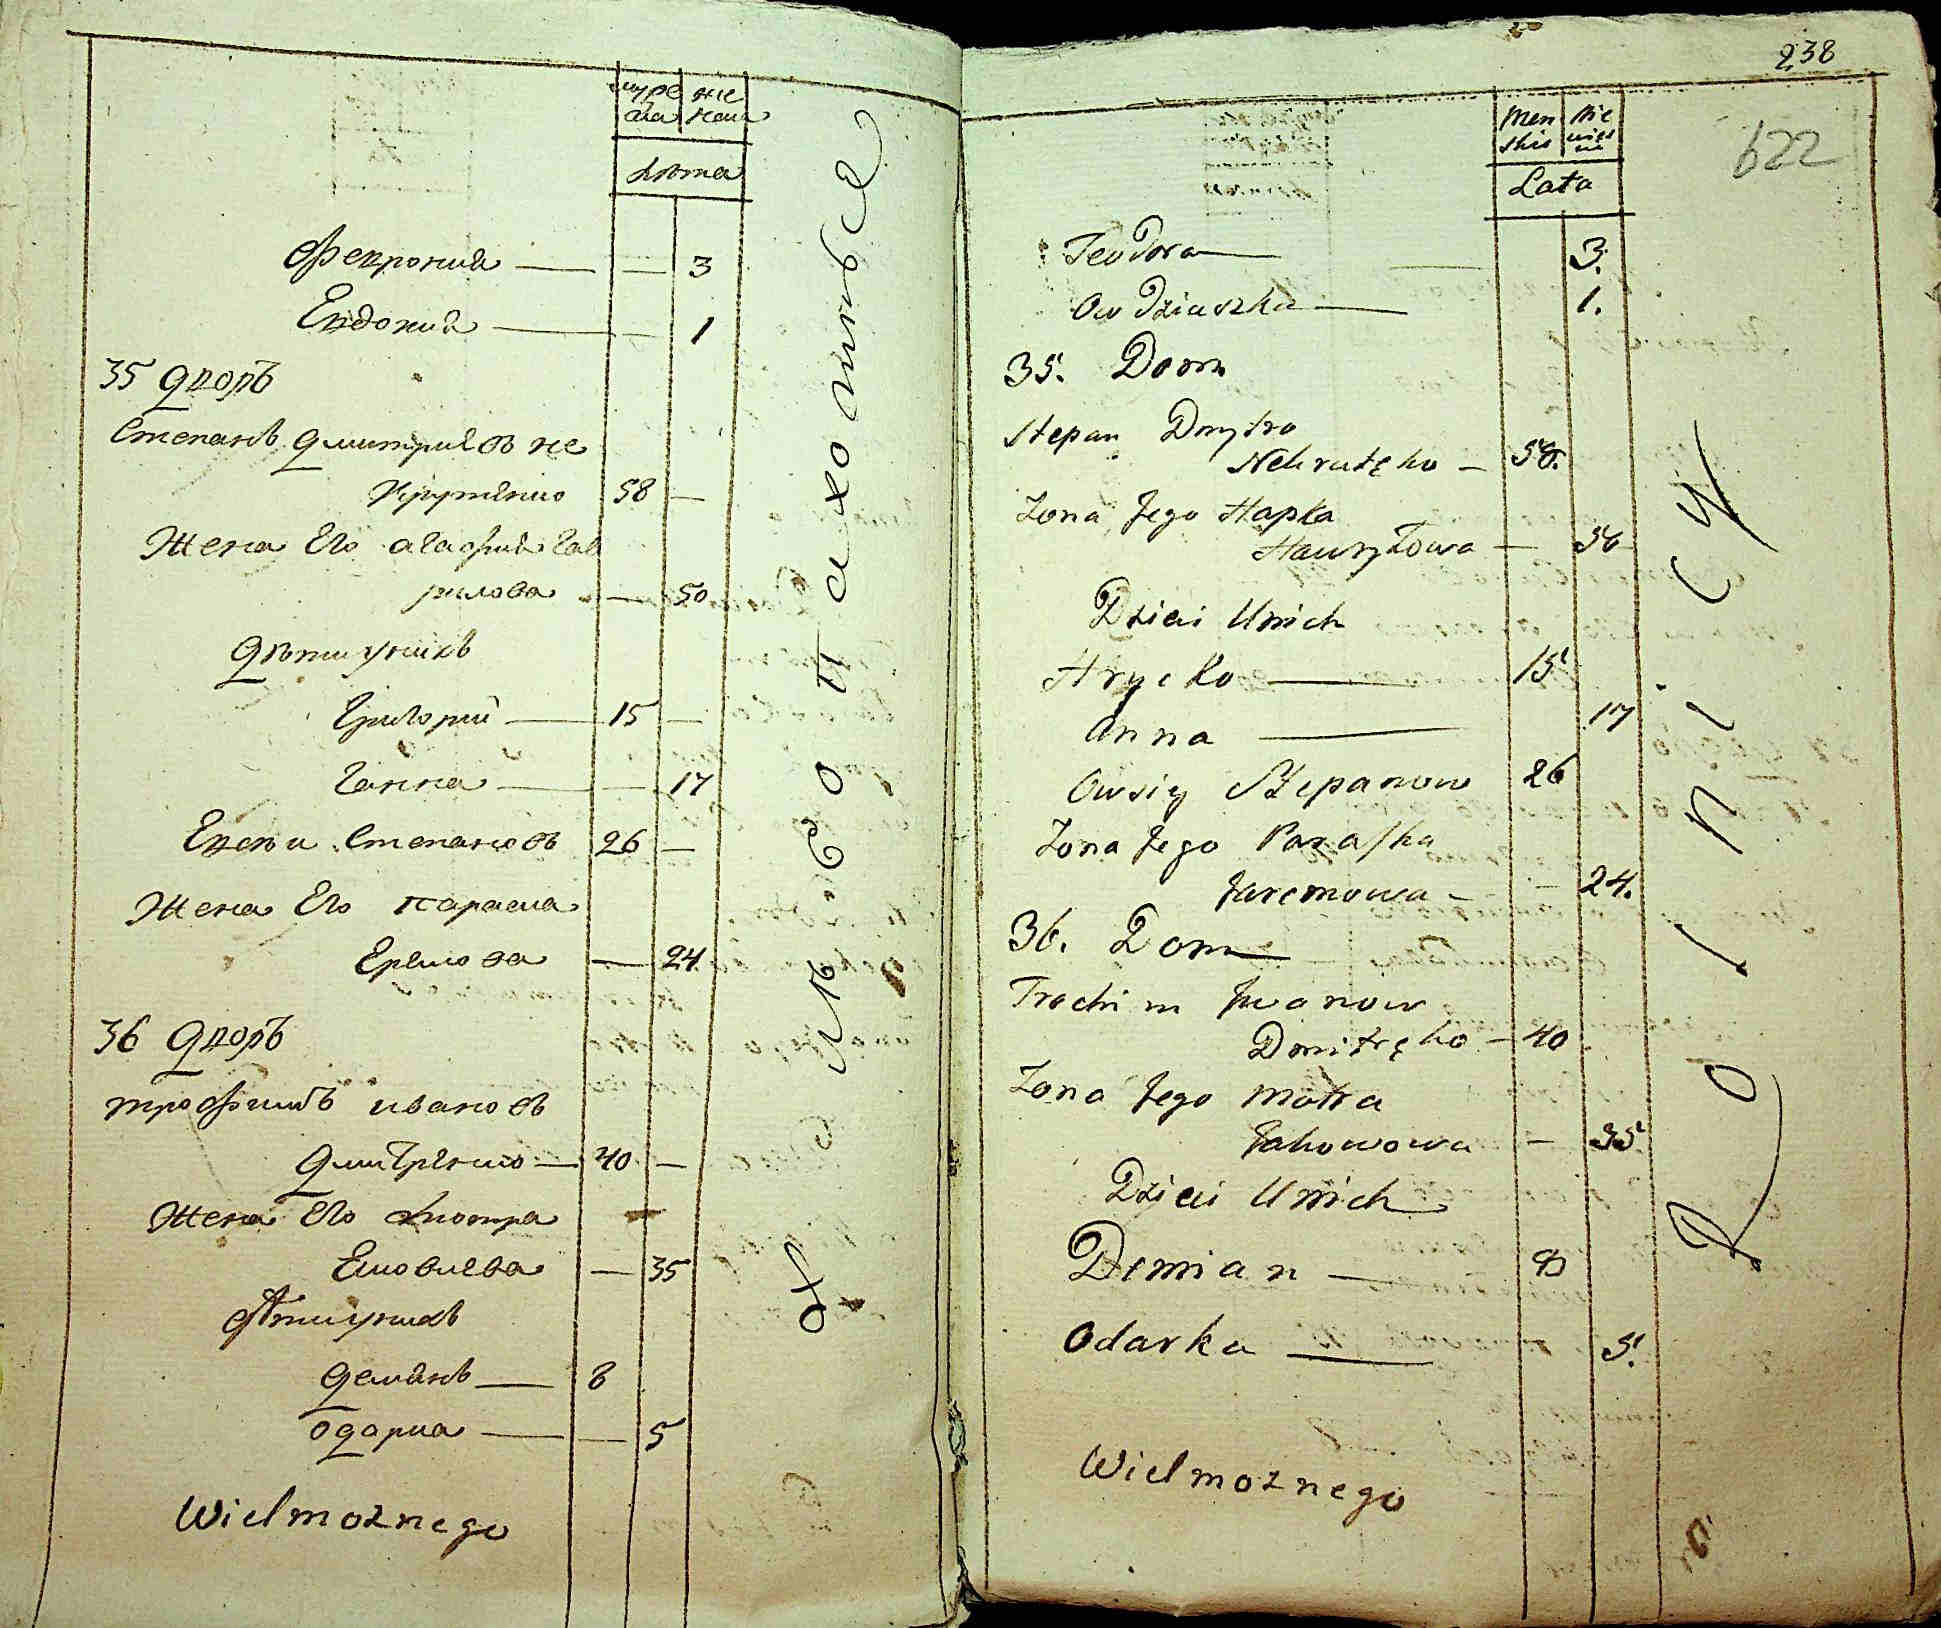 муже же
ска нска
лѣта
Феврония — — 3
Евдокия — — 1
35 дворъ
Степанъ дмитриевъ не
крутенко 58 —
Жена Его агафия гав
рилова — 50
дѣти унихъ
григорий — 15 —
ганна — — 17
Евсѣи Степановъ 26 —
Жена Его параска
Ерѣмова — 24
36 дворъ
трофимъ ивановъ
дмитренко — 40 —
Жена Его мотра
Яковлева — 35
дѣти унихъ
демянъ — 8
одарка — — 5
Wielmożnego
лѣбопахотные
238
622
Mens Nie
skie wieś
cie
Lata
Teodora — 3.
Owdziuszka — 1.
35. Dom
Stepan Dmytro
Nekrutęko — 58.
Żona Jego Hapka
Hawryłowa — 50
Dzieci Unich
Hrycko — 15
Anna — 17
Owsiy Stepanow 26
Żona Jego Paraska
Jaremowa — 24.
36. Dom
Trochim Iwanow
Dmitręko — 40
Żona Jego Motra
Jakowowa — 35
Dzieci Unich
Demian — 8
Odarka — 5.
Wielmożnego
Rolnicy